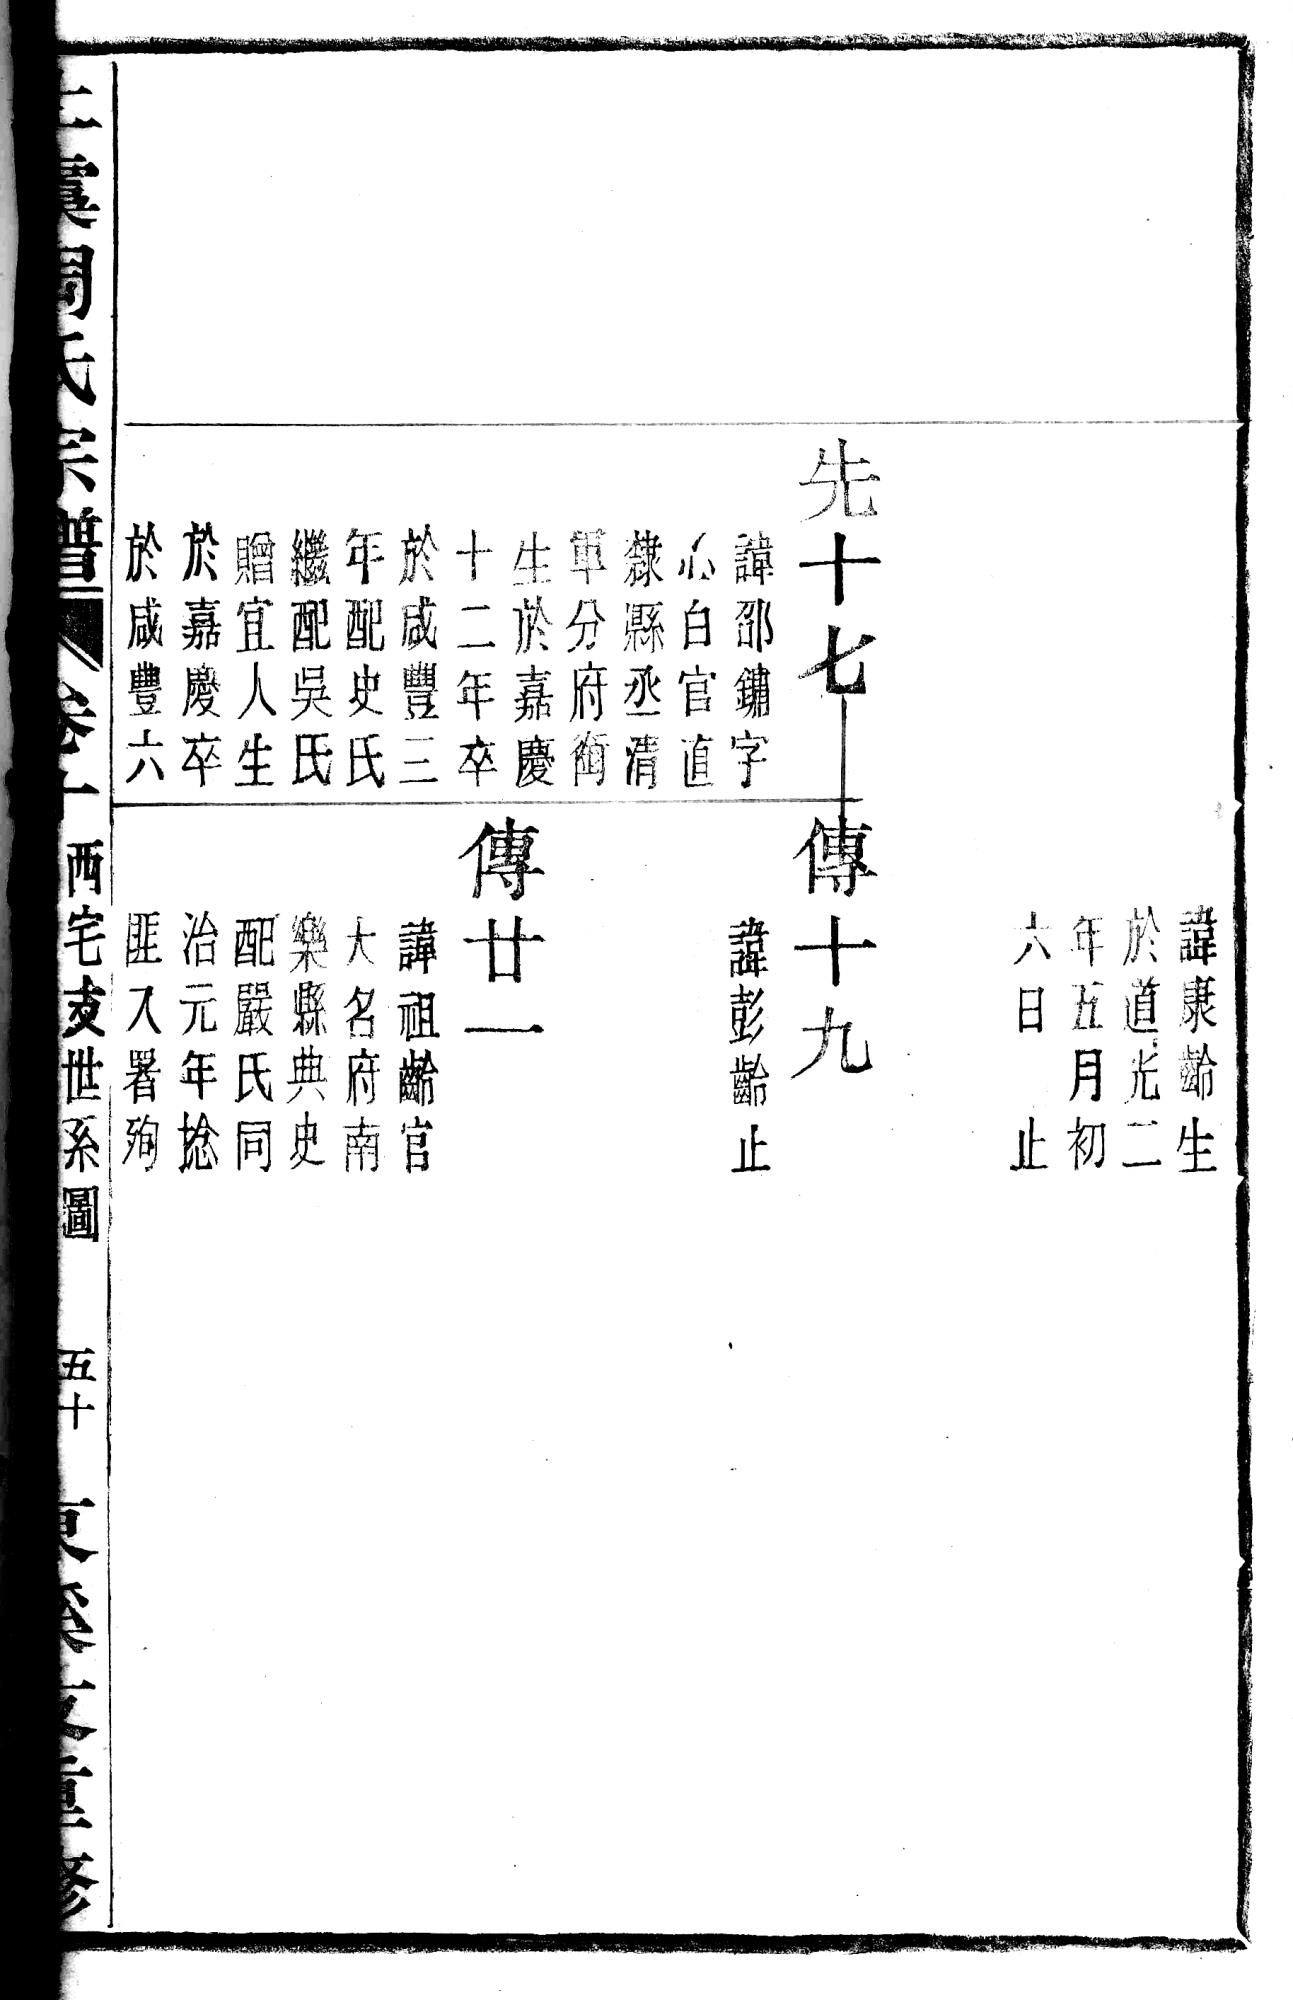 諱康齡生
於道光二
年五月初
六日　止
先十七
諱邵鏽字
心白官直
隸縣丞清
軍分府銜
生於嘉慶
十二年卒
於咸豐三
年配史氏
繼配吳氏
贈宜人生
於嘉慶卒
於咸豐六
傳十九
諱彭齡止
傳廿一
諱祖齡官
大名府南
樂縣典史
配嚴氏同
治元年捻
匪入署殉
周氏宗譜
卷十
西宅支世系圖
五十
重修